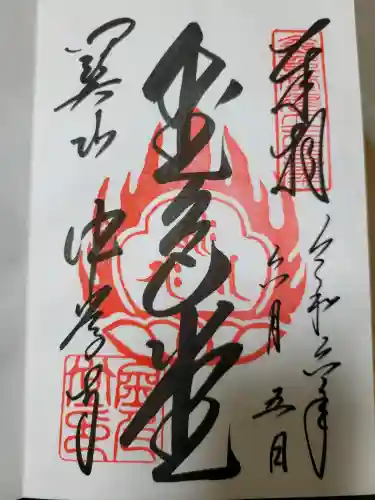 奉拝
令和六年
六月
五日
金色堂
関山
中尊寺